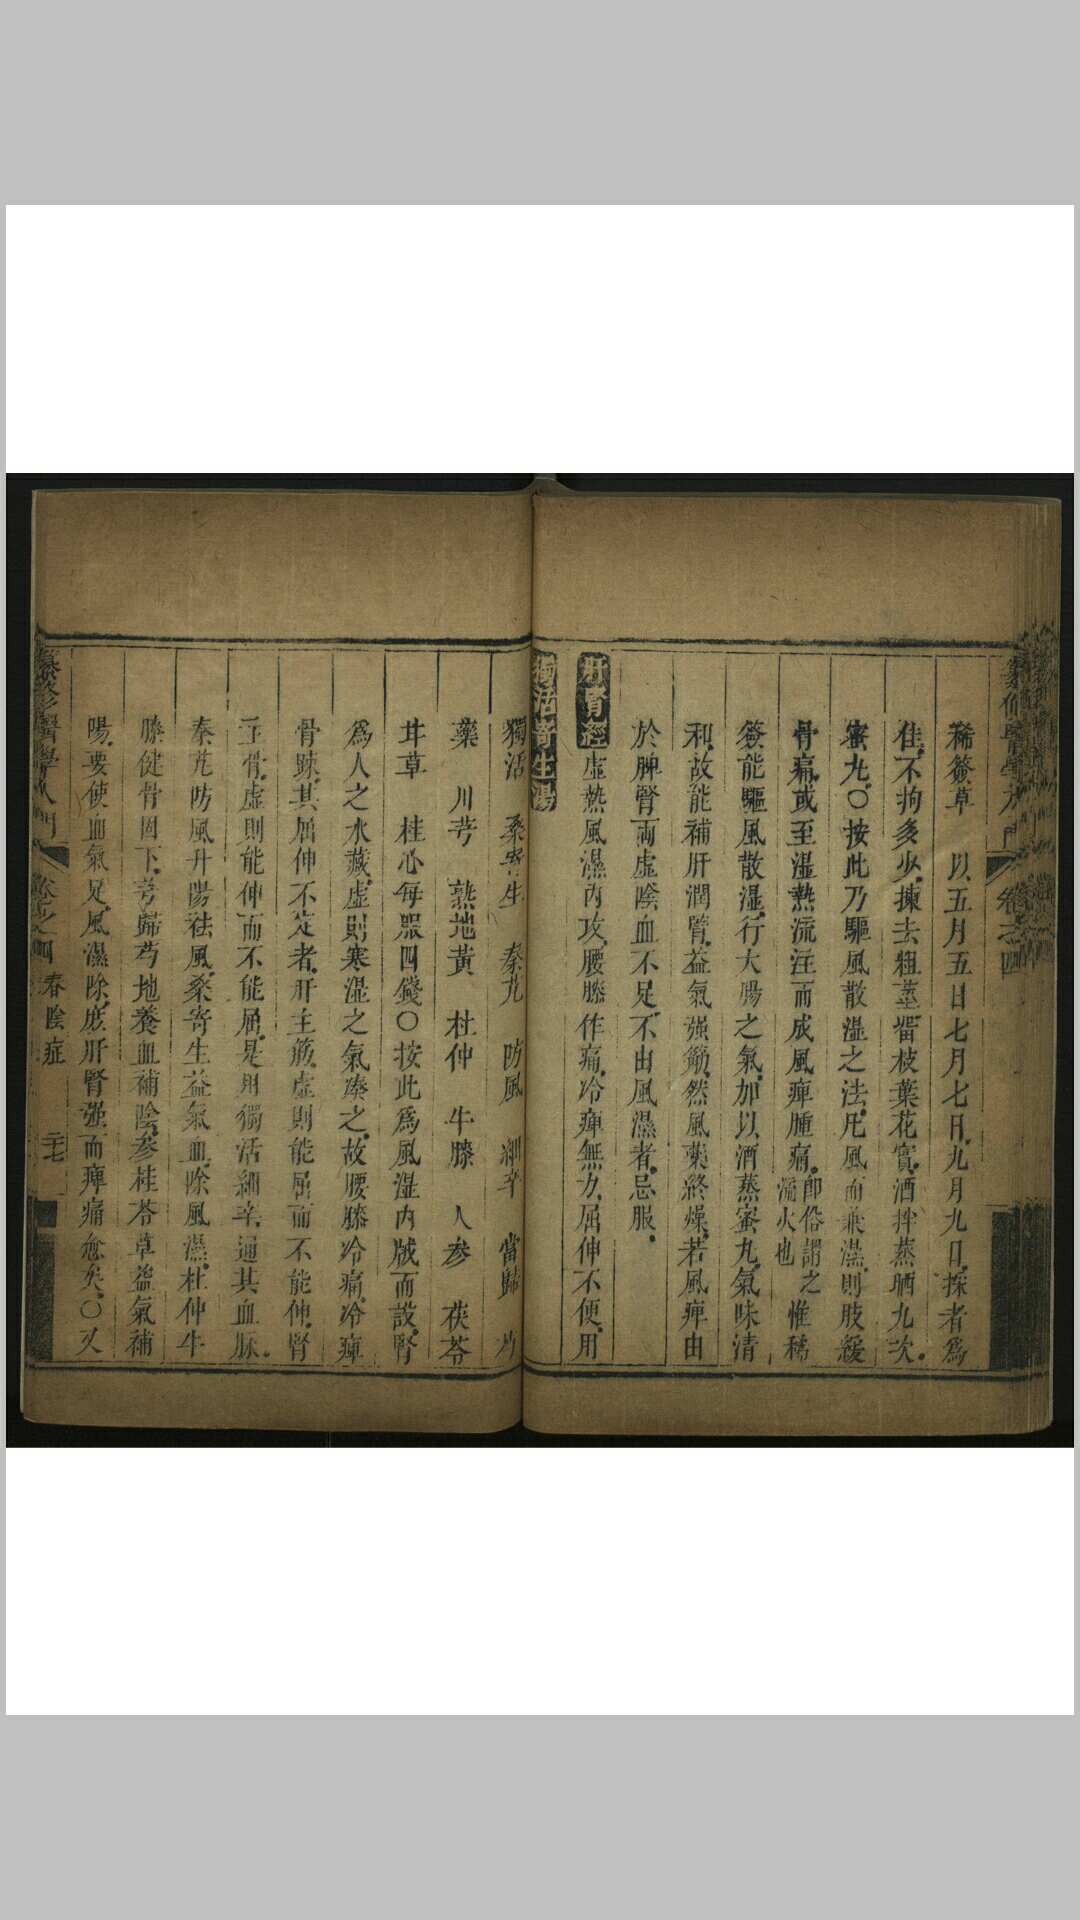 稀簽草 以五月五日七月七日九月九日採者爲
佳不拘多少揀去粗莖留枝葉花實酒拌蒸晒九次
蜜丸〇按此乃驅風散湿之法凡風而兼濕則肢緩
骨痛或至湿熱流注而成風痺腫痛即俗謂之流火也惟稀
簽能驅風散湿行大腸之氣加以酒蒸蜜丸氣味清
利故能補肝潤腎益氣强筋然風藥終燥若風痺由
於脾腎兩虛陰血不足不由風濕者忌服
肝腎經 虛熱風濕内攻腰膝作痛冷痺無力屈伸不便用
獨活寄生湯
獨活 桑寄生 秦艽 防風 細辛 當歸 芍
藥 川芎 熟地黃 杜仲 牛膝 人参 茯苓
甘草 桂心每服四錢〇按此爲風湿内戕而設腎
爲人之水藏虛則寒湿之氣凑之故腰膝冷痛冷痺
骨踈其屈伸不定者肝主筋虛則能屈而不能伸腎
主骨虛則能伸而不能屈是用獨活細辛通其血脉
秦艽防風升陽祛風桑寄生益氣血除風濕杜仲牛
膝健骨固下芎歸芍地養血補陰参桂苓草益氣補
陽要使血氣足風濕除庶肝腎强而痺痛愈矣〇又
醫學入門 卷之四 春陰症 二七